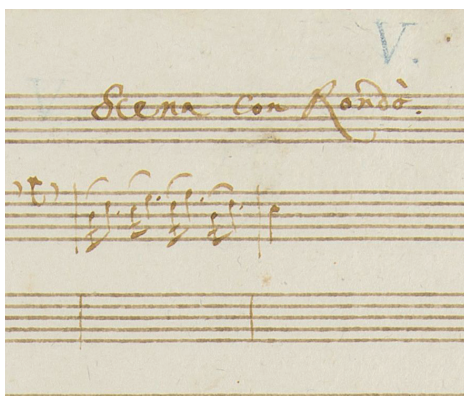 V.
Scena con Rondò.